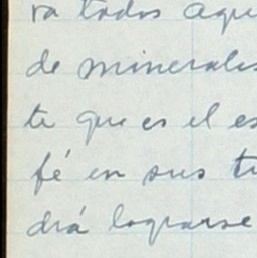 ra todos aque
de minerales
te que es el es
fé en sus tr
drá lograrse